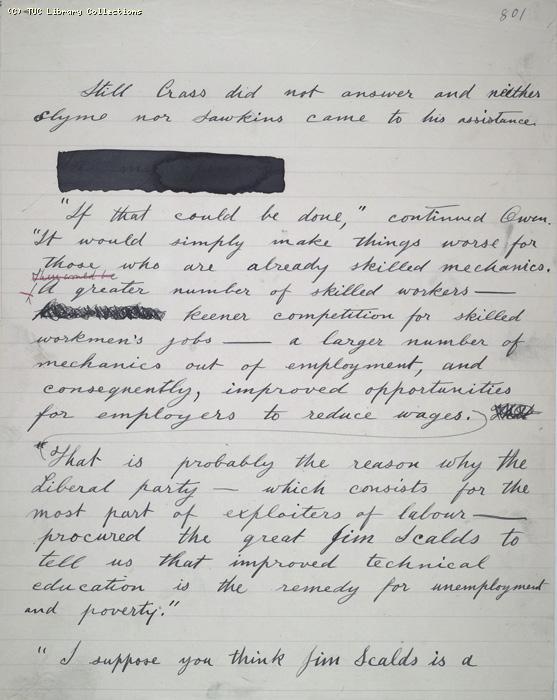 (C) TUC Library Collections
801
Still Crass did not answer and neither
Slyme nor Sawkins came to his assistance.
"If that could be done," continued Owen.
"It would simply make things worse for
those who are already skilled mechanics.
They would be
A greater number of skilled workers —
keener competition for skilled
workmen's jobs — a larger number of
mechanics out of employment, and
consequently, improved opportunities
for employers to reduce wages.
"That is probably the reason why the
Liberal party — which consists for the
most part of exploiters of labour —
procured the great Jim Scalds to
tell us that improved technical
education is the remedy for unemployment
and poverty."
"I suppose you think Jim Scalds is a